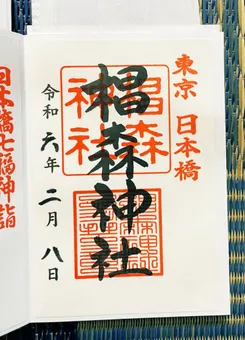 東京 日本橋
椙森神社
椙森神社
令和六年二月八日
日本橋七福神詣